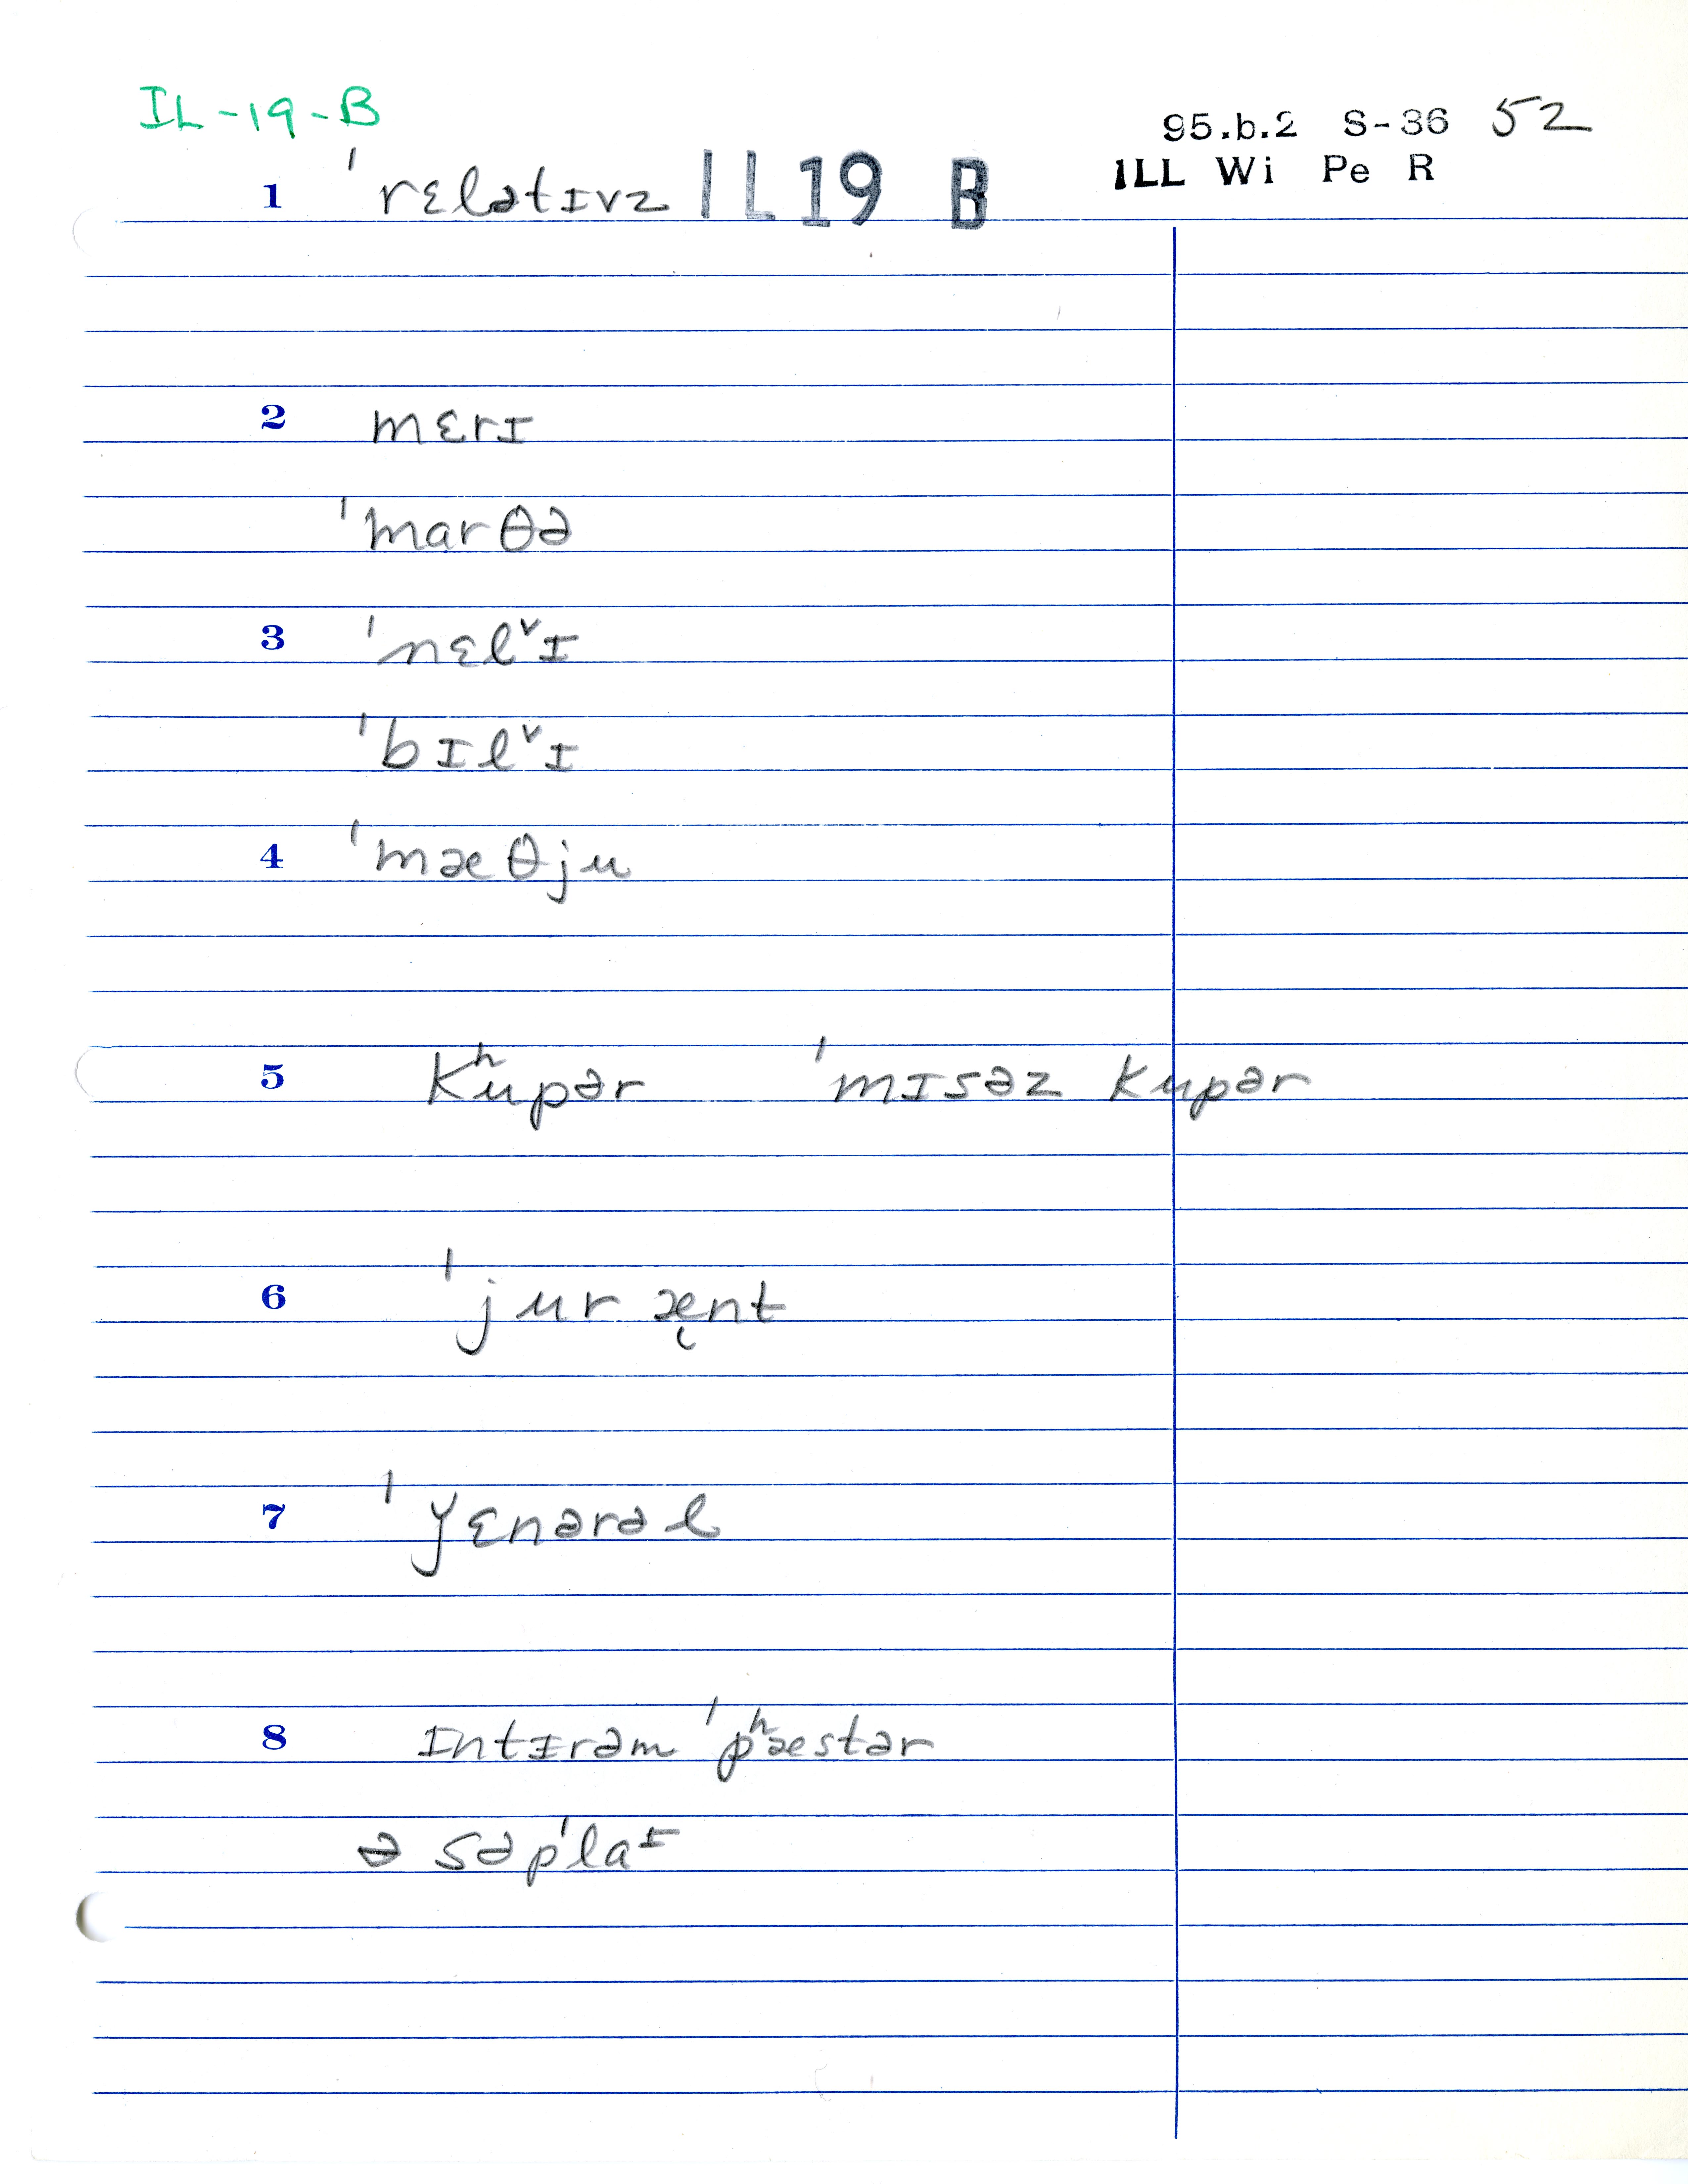 IL-19-B
95.b.2 S-36 52
ILL Wi Pe R
1 ˈrɛlətɪvz IL19 B
2 mɛrɪ
ˈmarθə
3 ˈnɛlᵛɪ
ˈbɪlᵛɪ
4 ˈmæθju
5 Kʰupər ˈmɪsəz Kupər
6 ˈjur æ̨nt
7 ˈǰɛnərəl
8 ɪntɪrəm ˈpʰæstər
ə səpˈlaᶦ